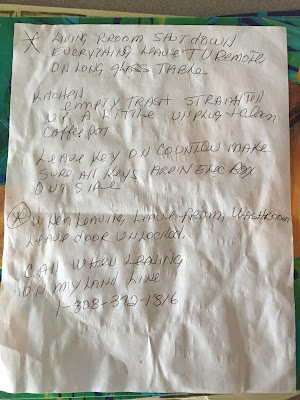 * LIVING RROOM SHUTDOWN
EVERYTHING LEAVE TV REMOTE
ON LONG GLASS TABLE
KITCHEN
EMPTY TRASH STRAIGHTEN
UP A LITTLE UNPLUG + CLEAN
COFFEE POT
LEAVE KEY ON COUNTER MAKE
SURE ALL KEYS ARE IN BOX
OUT SIDE
* WHEN LEAVING, LEAVE FROM WASHROOM
LEAVE DOOR UNLOCKED,
CALL WHEN LEAVING
ON MY LAND LINE
1-308-392-1816